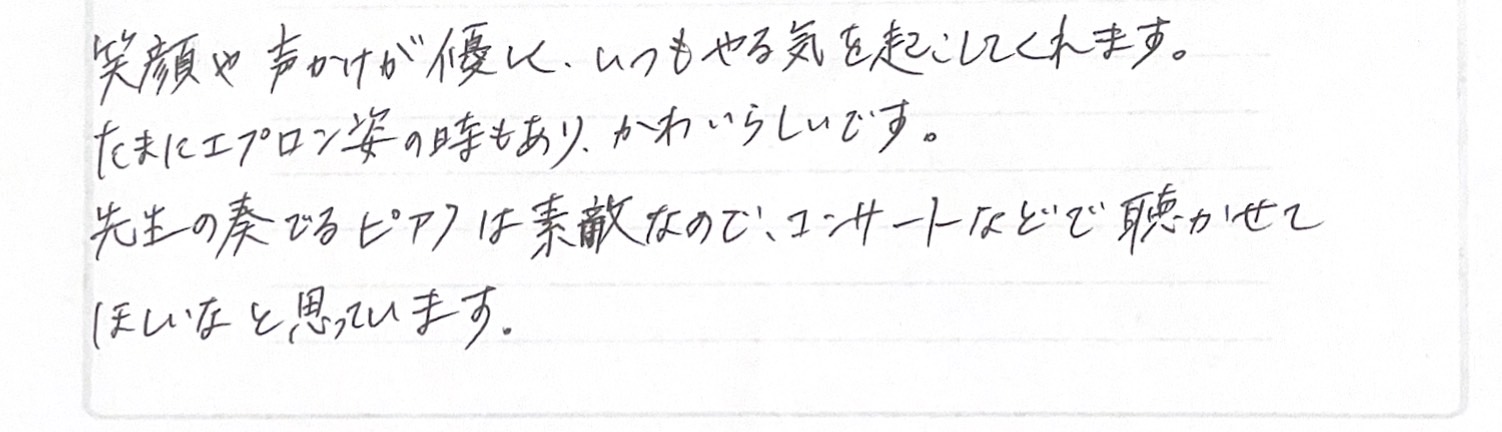 笑顔や声かけが優しく、いつもやる気を起こしてくれます。
たまにエプロン姿の時もあり、かわいらしいです。
先生の奏でるピアノは素敵なので、コンサートなどで聴かせて
ほしいなと思っています。